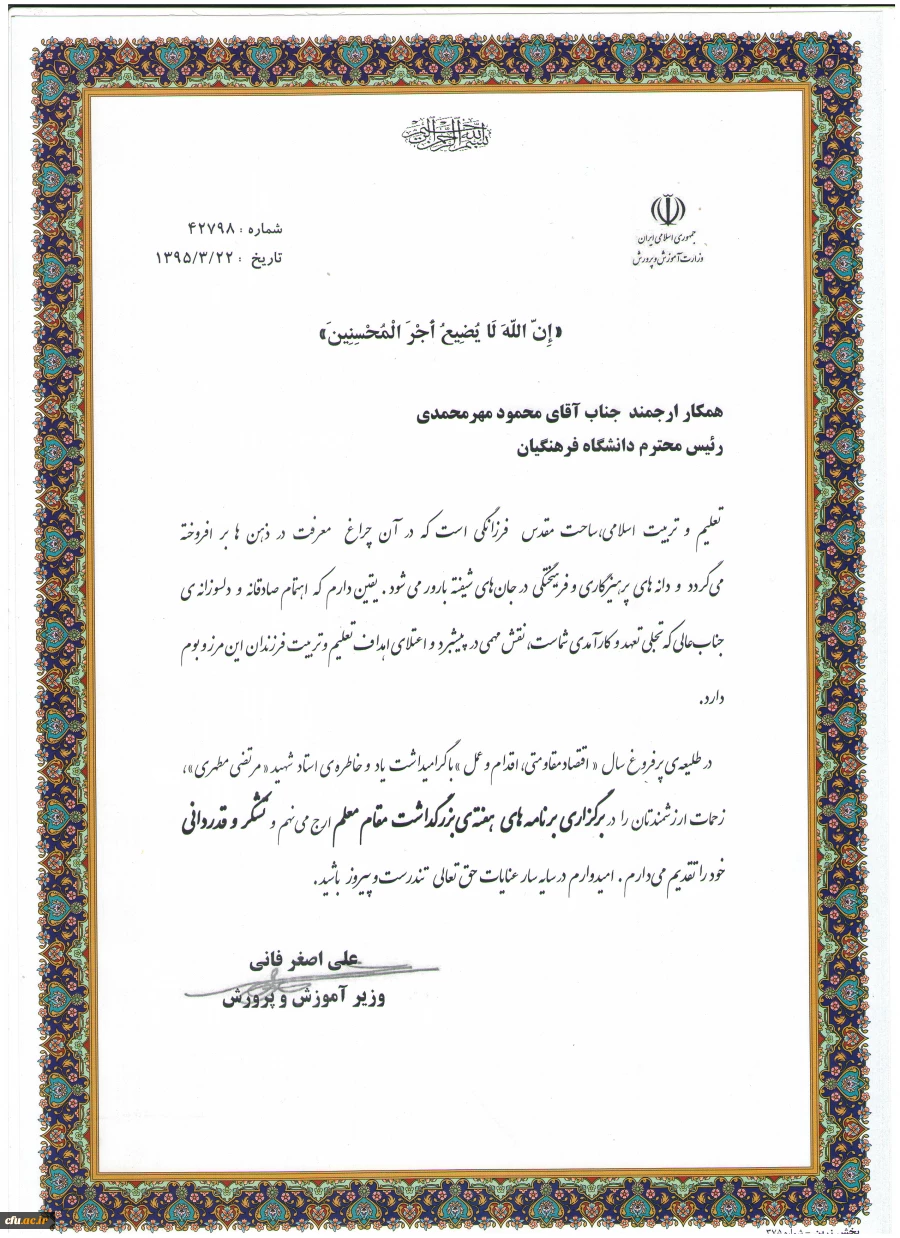 بسم الله الرحمن الرحیم
جمهوری اسلامی ایران
وزارت آموزش و پرورش
شماره : ۴۲۷۹۸
تاریخ : ۱۳۹۵/۳/۲۲
«إِنّ اللّهَ لَا يُضِيعُ أجْرَ الْمُحْسِنِينَ»
همکار ارجمند جناب آقای محمود مهرمحمدی
رئیس محترم دانشگاه فرهنگیان
تعلیم و تربیت اسلامی،ساحت مقدس فرزانگی است که در آن چراغ معرفت در ذهن ها بر افروخته
می‌گردد و دانه های پرهیزکاری و فرهیختگی در جان‌های شیفته بارور می شود . یقین دارم که اهتمام صادقانه و دلسوزانه ی
جناب‌عالی که تجلی تعهد و کارآمدی شماست، نقش مهمی در پیشبرد و اعتلای اهداف تعلیم و تربیت فرزندان این مرز و بوم
دارد.
در طلیعه‌ی پرفروغ سال « اقتصاد مقاومتی، اقدام و عمل » با گرامیداشت یاد و خاطره‌ی استاد شهید « مرتضی مطهری »،
زحمات ارزشمندتان را در برگزاری برنامه های هفته‌ی بزرگداشت مقام معلم ارج می‌نهم و تشکر و قدردانی
خود را تقدیم می‌دارم . امیدوارم در سایه سار عنایات حق تعالی تندرست و پیروز باشید .
علی اصغر فانی
وزیر آموزش و پرورش
cfu.ac.ir